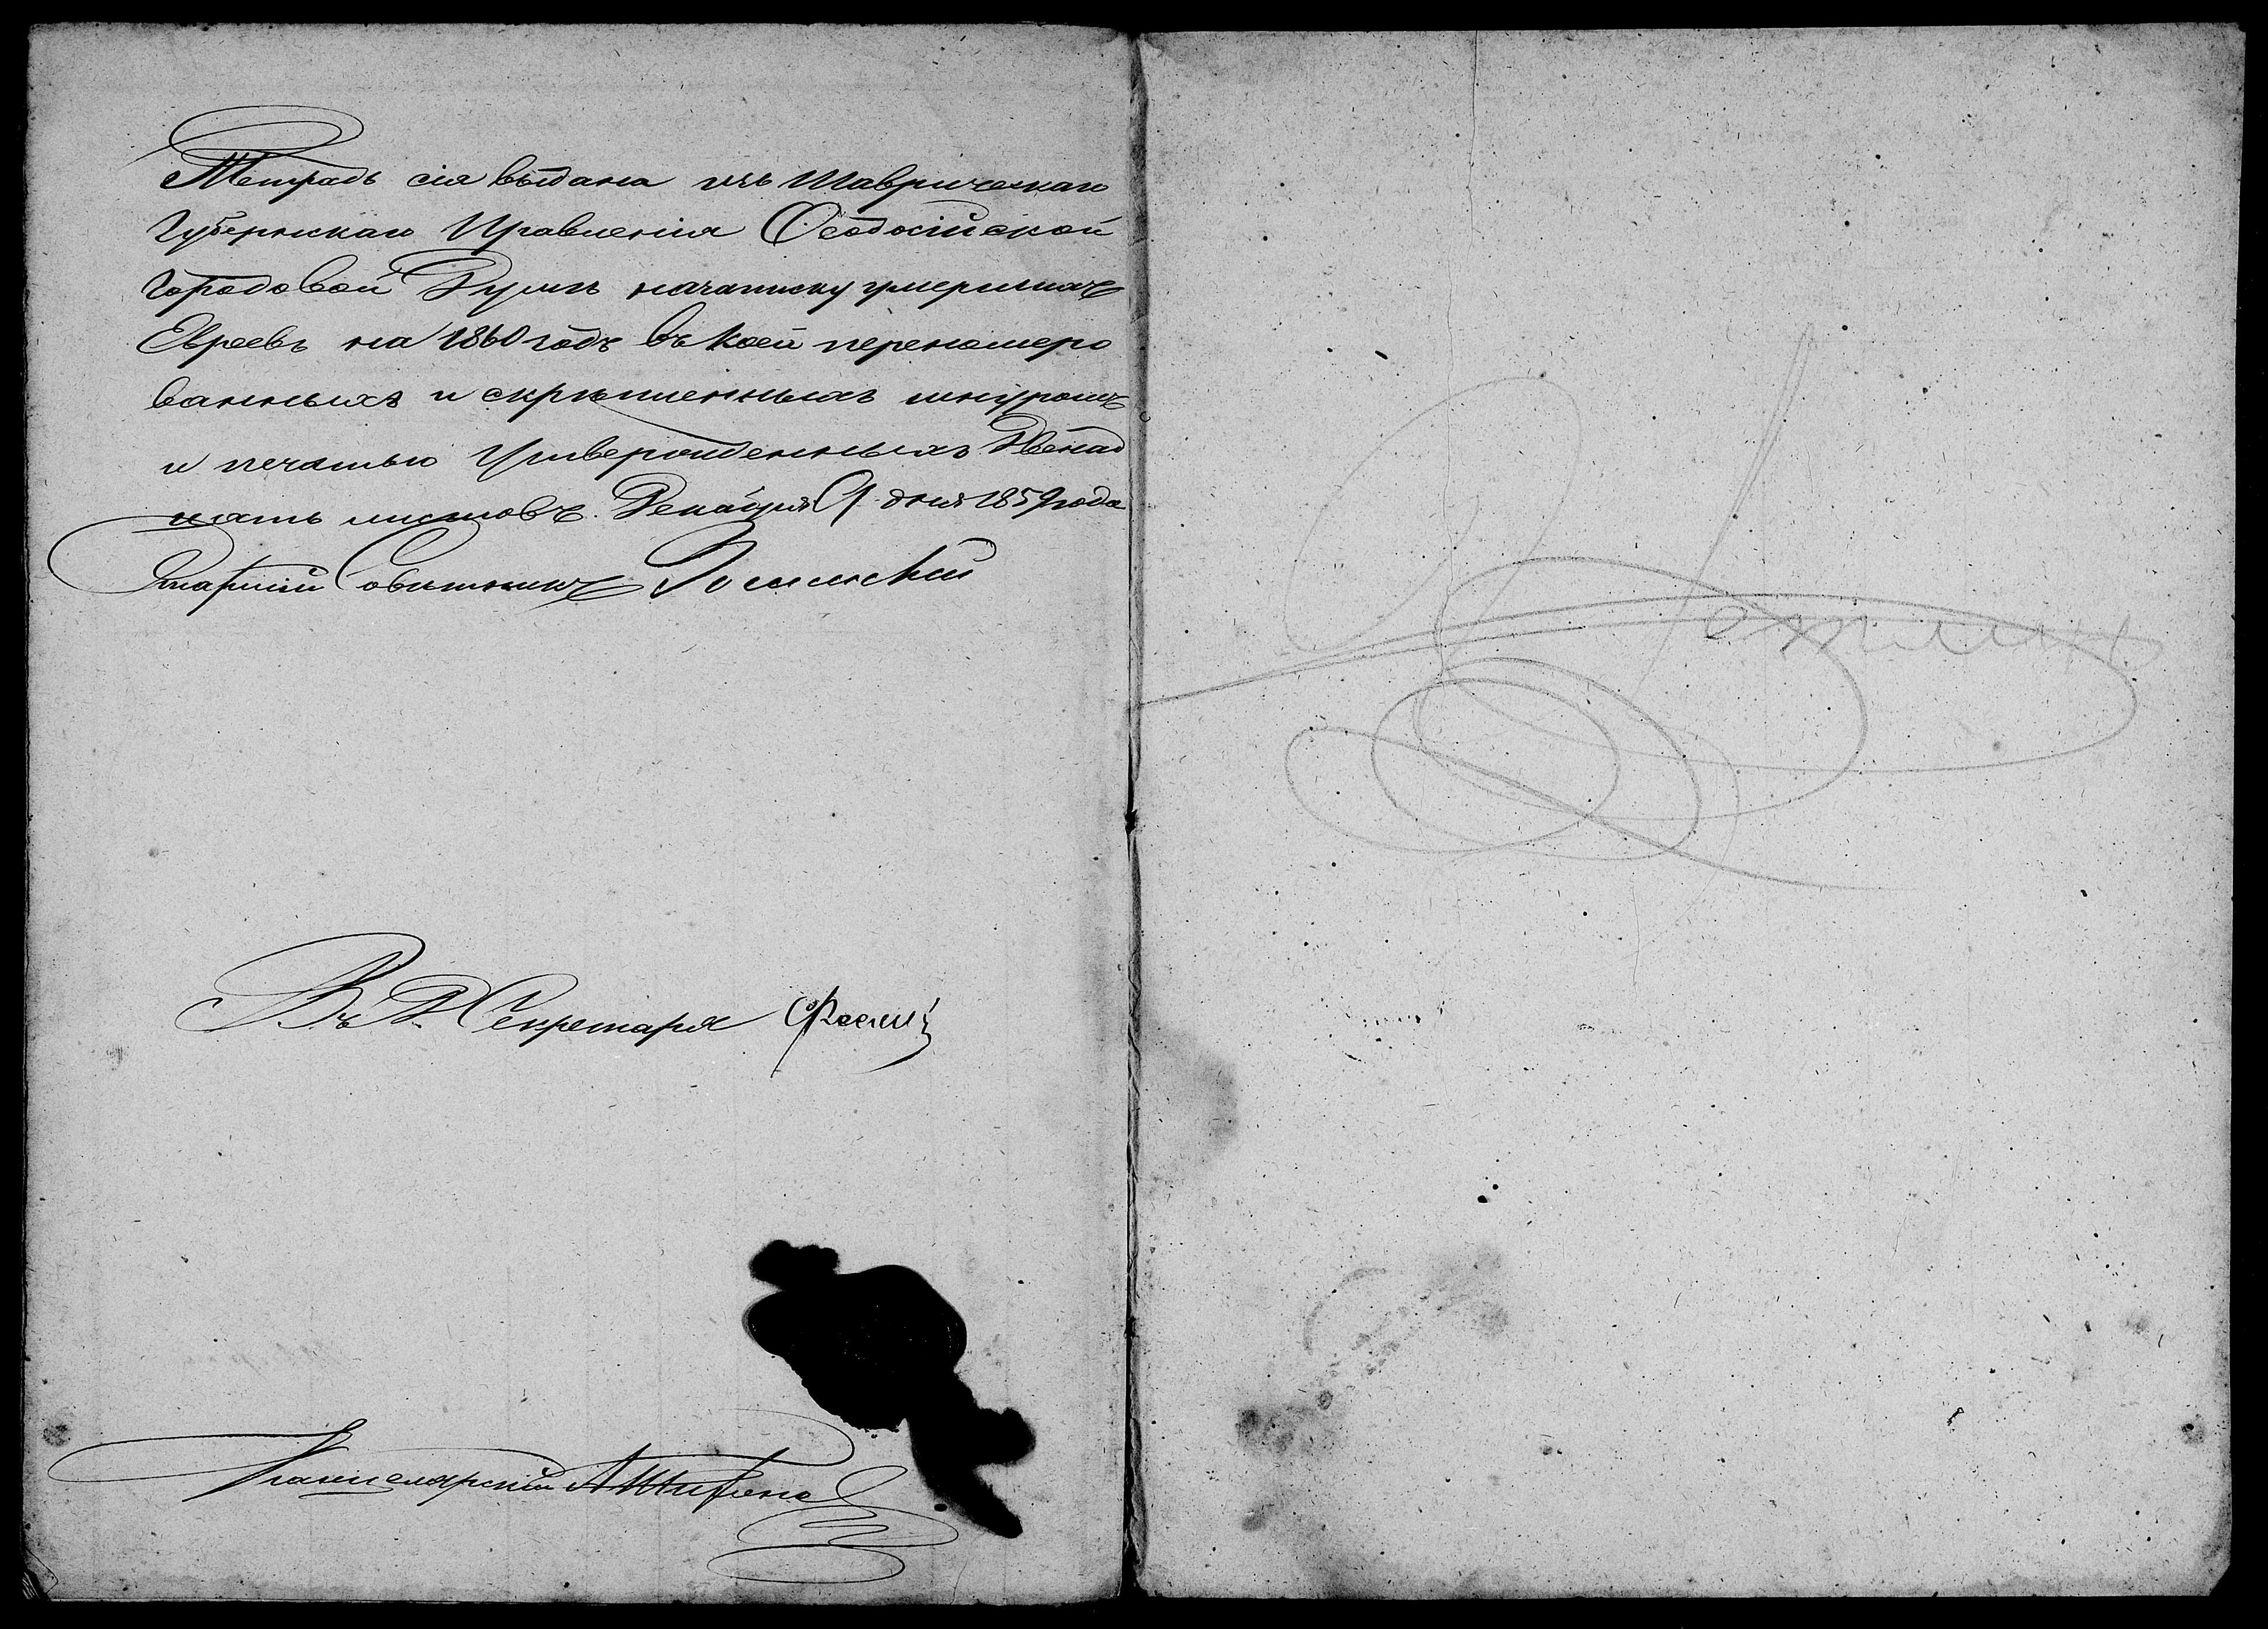 Тетрадь сія выдана изъ Таврическаго
Губернскаго Правленія Ѳеодосійской
Городовой Думѣ на записку умершихъ
Евреевъ на 1860 годъ въ коей перенумеро
ванныхъ и скрѣпленныхъ шнуромъ
и печатью утвержденныхъ двенад
цать листовъ. Декабря 9 дня 1859 года
Старшій Совѣтникъ
Въ Д. Секретаря
Канцелярскій А